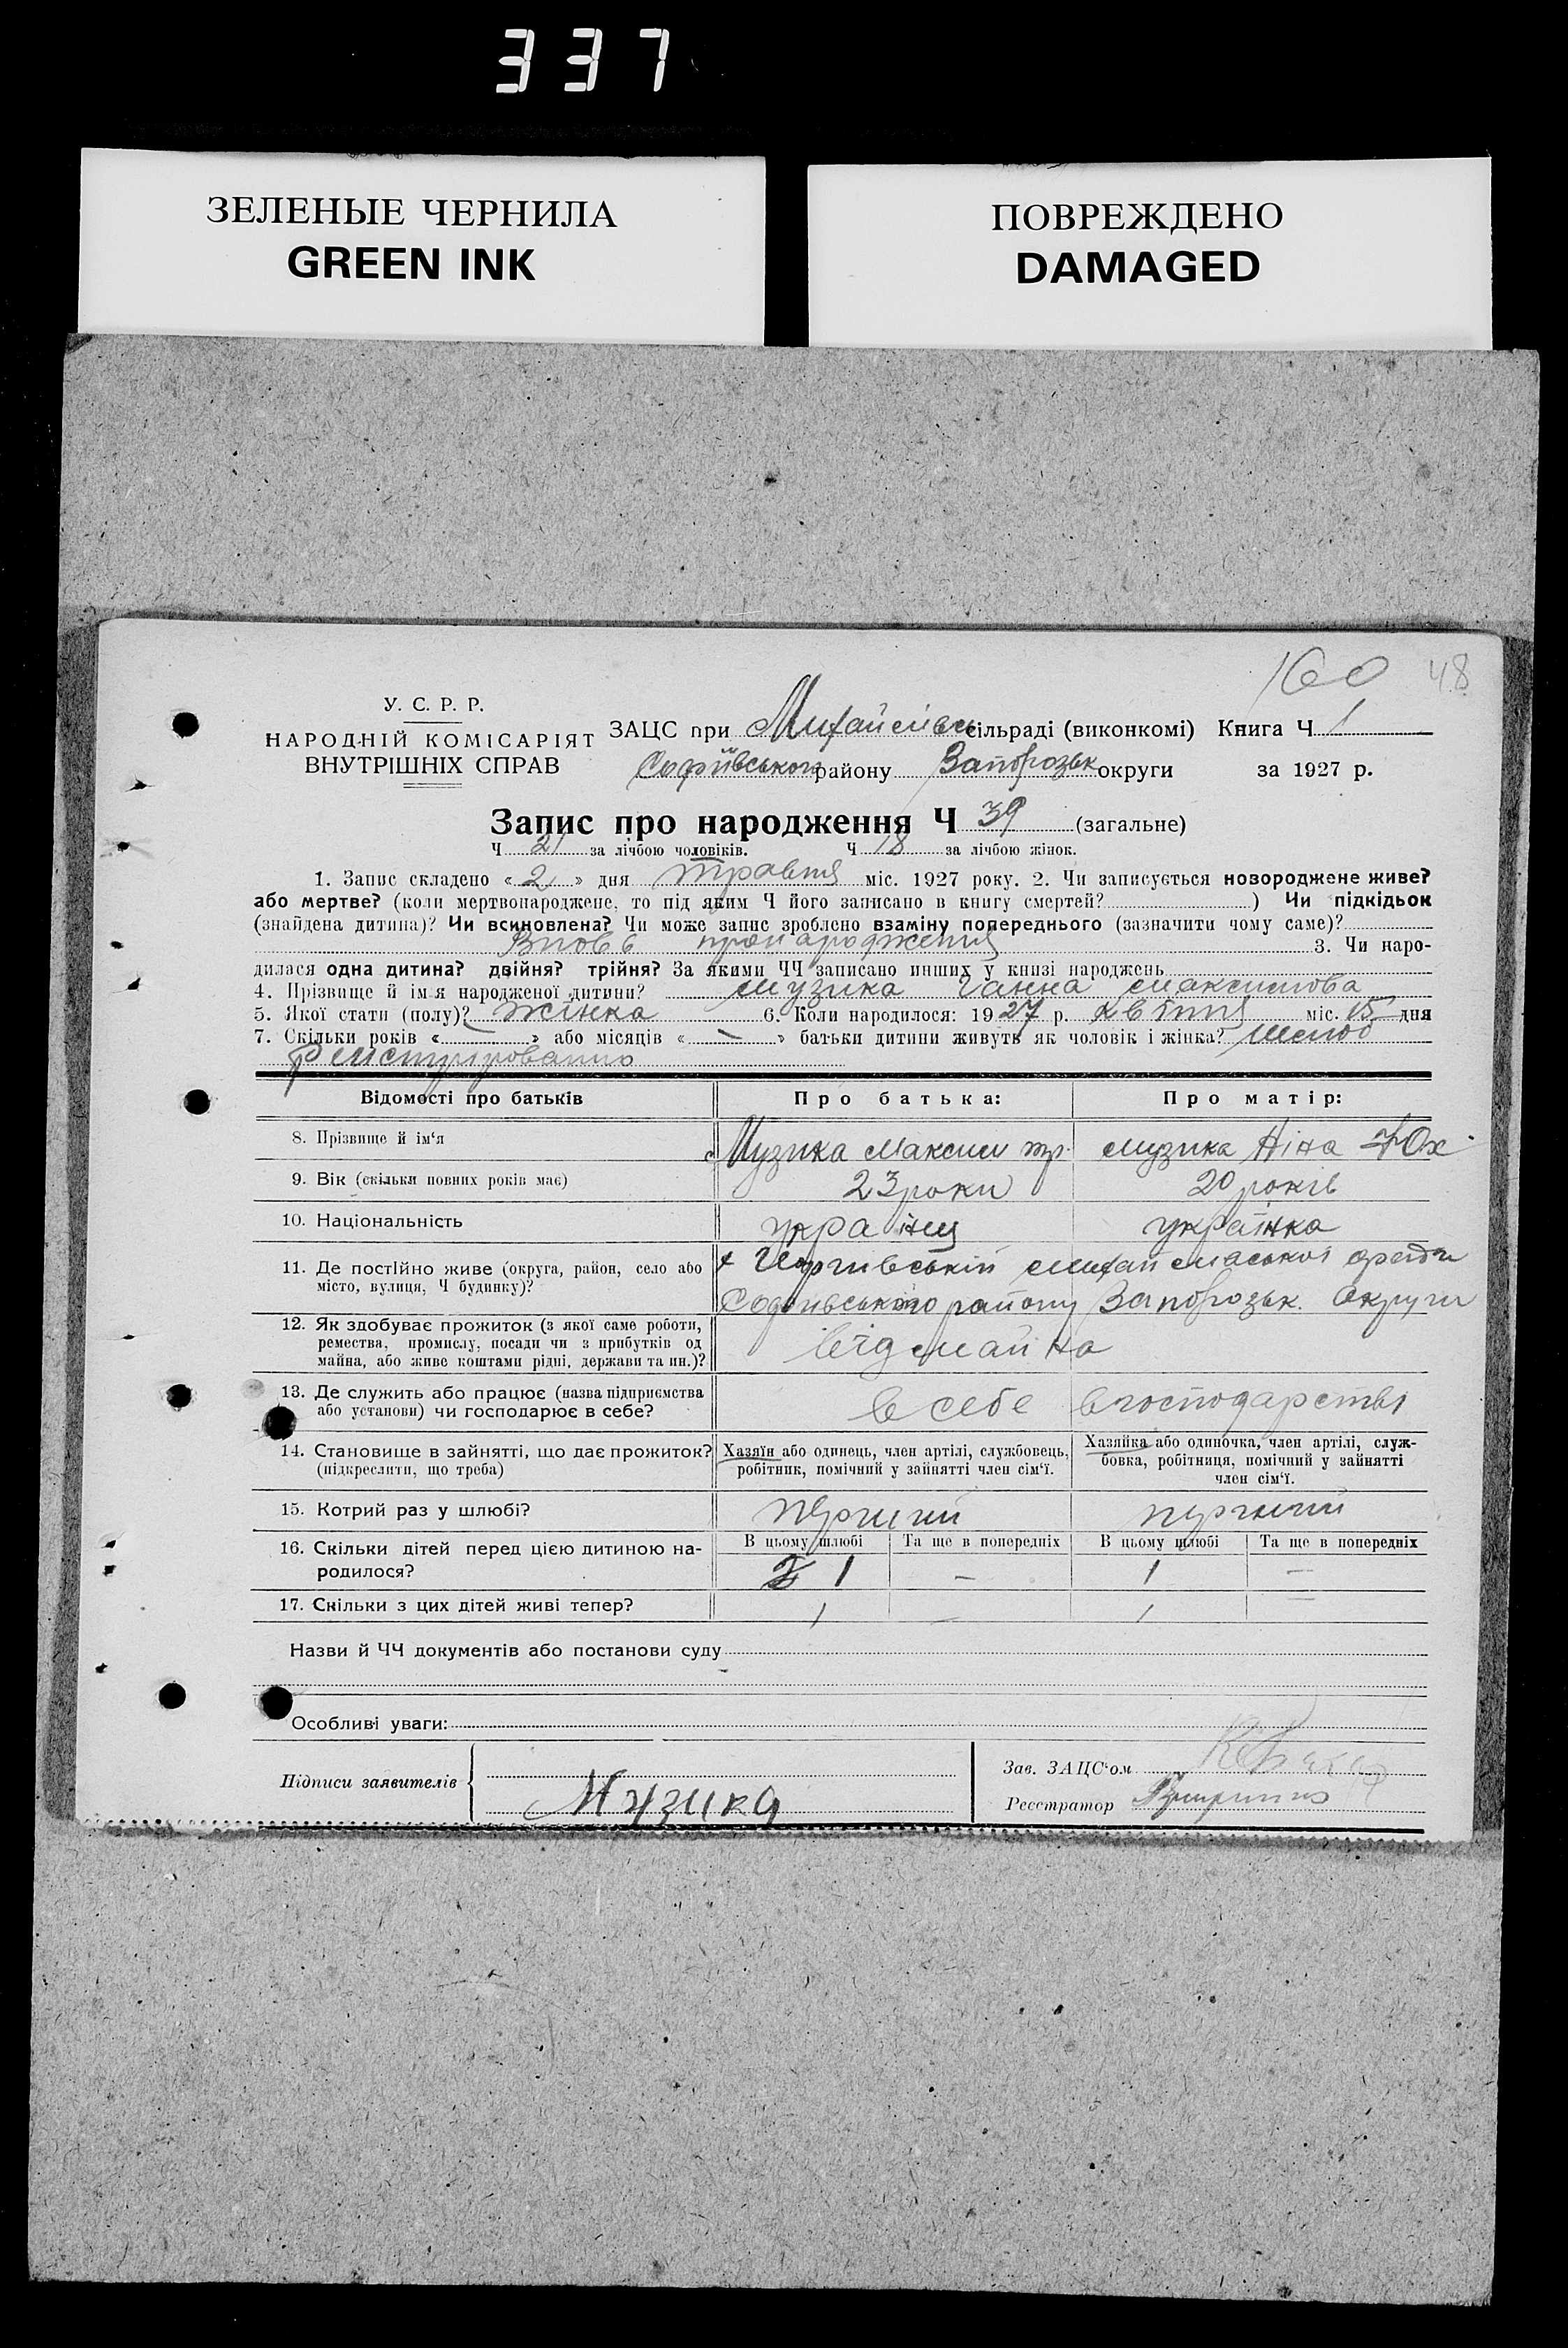 337
ЗЕЛЕНЫЕ ЧЕРНИЛА
GREEN INK
ПОВРЕЖДЕНО
DAMAGED
160 48
У. С. Р. Р.
НАРОДНІЙ КОМІСАРІЯТ
ВНУТРІШНІХ СПРАВ
ЗАЦС при Михайлівськ сільраді (виконкомі) Книга Ч 1
Софіївського району Запорозьк округи за 1927 р.
Запис про народження Ч 39 (загальне)
Ч 21 за лічбою чоловіків. Ч 18 за лічбою жінок.
1. Запис складено « 2 » дня травня міс. 1927 року. 2. Чи записується новороджене живе?
або мертве? (коли мертвонароджене, то під яким Ч його записано в книгу смертей? ) Чи підкідьок
(знайдена дитина)? Чи всиновлена? Чи може запис зроблено взаміну попереднього (зазначити чому саме)?
Вновь про народження 3. Чи наро-
дилася одна дитина? двійня? трійня? За якими ЧЧ записано инших у книзі народжень
4. Прізвище й ім'я народженої дитини? Музика Ганна Максимова
5. Якої стати (полу)? Жінка 6. Коли народилося: 1927 р. квітня міс. 15 дня
7. Скільки років « » або місяців « — » батьки дитини живуть як чоловік і жінка? шлюб
Відомості про батьків
Про батька:
Про матір:
8. Прізвище й ім‘я Музика Максим гр. Музика Ніна Юх
9. Вік (скільки повних років має) 23 роки 20 років
10. Національність українц українка
11. Де постійно живе (округа, район, село або
місто, вулиця, Ч будинку)?
Софіївського району Запорозьк. Округи
12. Як здобуває прожиток (з якої саме роботи,
ремества, промислу, посади чи з прибутків од
майна, або живе коштами рідні, держави та ин.)?
від майна
13. Де служить або працює (назва підприємства
або установи) чи господарює в себе?
в себе в господарстві
14. Становище в зайнятті, що дає прожиток?
(підкреслити, що треба)
Хазяїн або одинець, член артілі, службовець,
робітник, помічний у зайнятті член сім‘ї.
Хазяйка або одиночка, член артілі, служ-
бовка, робітниця, помічний у зайнятті
член сім‘ї.
15. Котрий раз у шлюбі? перший перший
16. Скільки дітей перед цією дитиною на-
родилося?
В цьому шлюбі Та ще в попередніх В цьому шлюбі Та ще в попередніх
1 — 1 —
17. Скільки з цих дітей живі тепер? 1 — 1 —
Назви й ЧЧ документів або постанови суду
Особливі уваги:
Підписи заявителів
Музика
Зав. ЗАЦС‘ом
Реєстратор